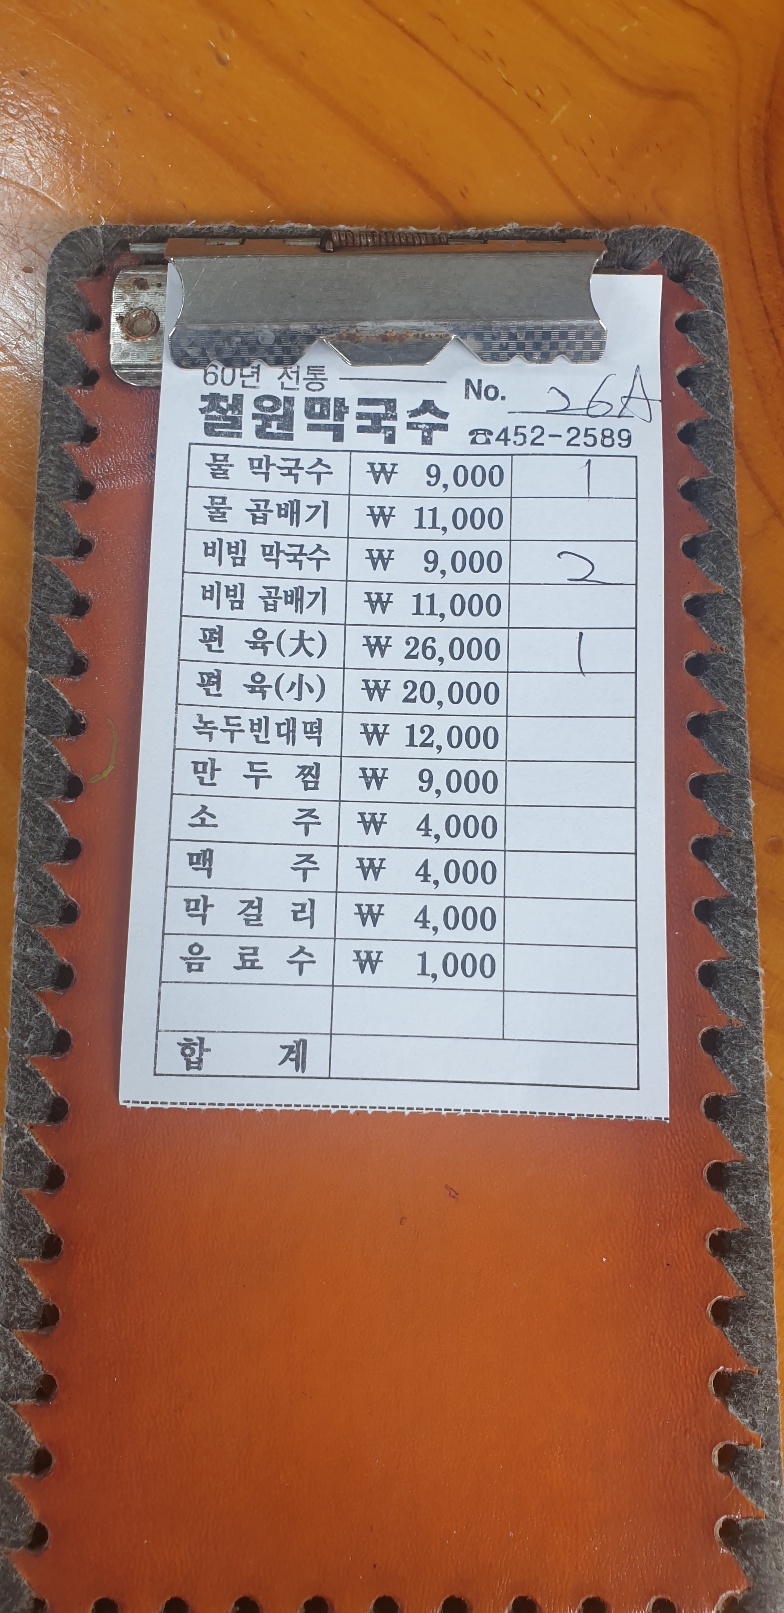 60년 전통
No. 26A
철원막국수 ☎452-2589
물 막국수 ₩ 9,000 1
물 곱배기 ₩ 11,000
비빔 막국수 ₩ 9,000 2
비빔 곱배기 ₩ 11,000
편 육(大) ₩ 26,000 1
편 육(小) ₩ 20,000
녹두빈대떡 ₩ 12,000
만 두 찜 ₩ 9,000
소 주 ₩ 4,000
맥 주 ₩ 4,000
막 걸 리 ₩ 4,000
음 료 수 ₩ 1,000
합 계